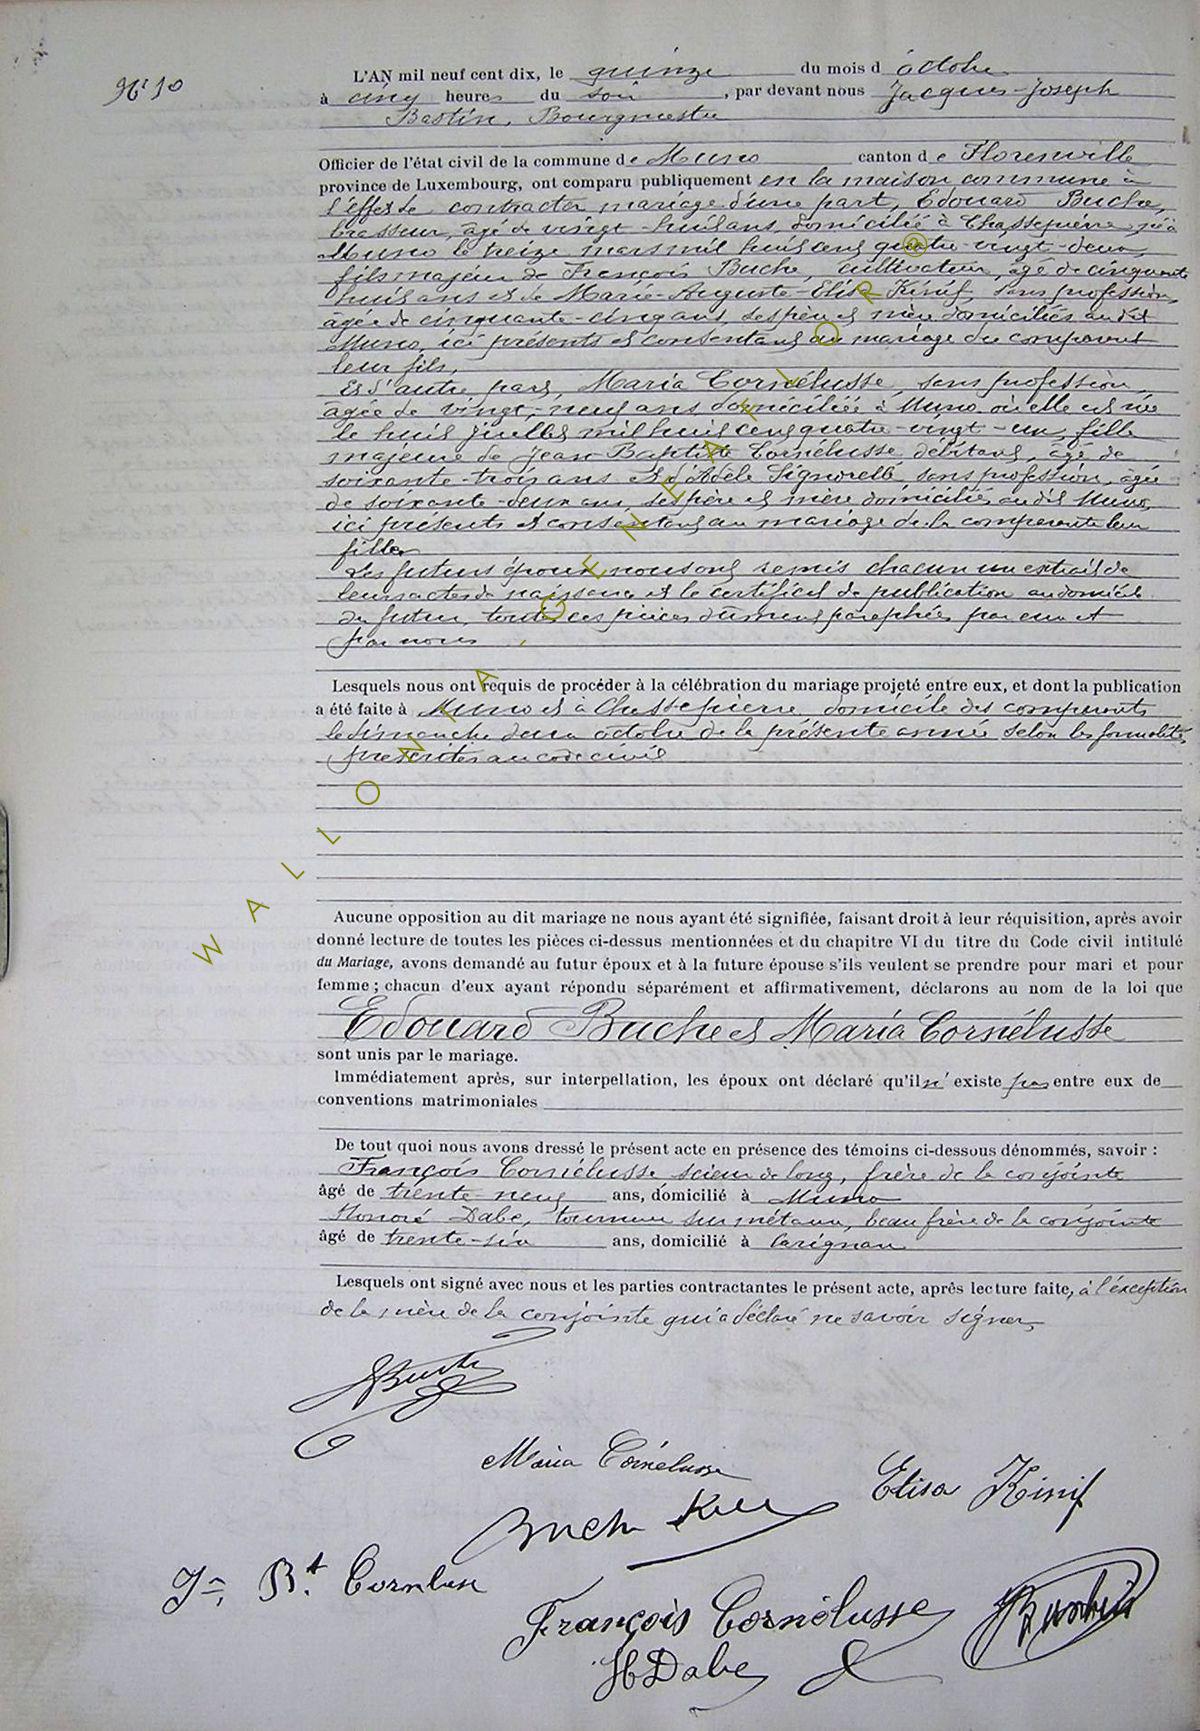 N° 10
L'AN mil neuf cent dix, le quinze du mois d'octobre
à cinq heures du soir, par devant nous Jacques-Joseph
Bastin, Bourgmestre
Officier de l'état civil de la commune de Muno canton de Florenville
province de Luxembourg, ont comparu publiquement en la maison commune à
l'effet de contracter mariage d'une part, Edouard Buche,
brasseur, âgé de vingt-huit ans, domicilié à Chassepierre, né à
Muno le treize mars mil huit cent quatre-vingt-deux,
fils majeur de François Buche, cultivateur, âgé de cinquante
huit ans et de Marie-Auguste-Elisa Kinif, sans profession,
âgée de cinquante-cinq ans, ses père et mère domiciliés audit
Muno, ici présents et consentant au mariage du comparant
leur fils,
Et d'autre part, Maria Cornélusse, sans profession,
âgée de vingt-neuf ans domiciliée à Muno où elle est née
le huit juillet mil huit cent quatre-vingt-un, fille
majeure de Jean Baptiste Cornélusse débitant, âgé de
soixante-trois ans et d'Adèle Signorelle sans profession, âgée
de soixante-deux ans, ses père et mère domiciliés audit Muno,
ici présents et consentant au mariage de la comparante leur
fille
Les futurs époux nous ont remis chacun un extrait de
leurs actes de naissance et le certificat de publication au domicile
du futur, toutes ces pièces dûment paraphées par eux et
par nous
Lesquels nous ont requis de procéder à la célébration du mariage projeté entre eux, et dont la publication
a été faite à Muno et à Chassepierre domicile des comparants
le dimanche deux octobre de la présente année selon les formalités
prescrites au code civil
Aucune opposition au dit mariage ne nous ayant été signifiée, faisant droit à leur réquisition, après avoir
donné lecture de toutes les pièces ci-dessus mentionnées et du chapitre VI du titre du Code civil intitulé
du Mariage, avons demandé au futur époux et à la future épouse s'ils veulent se prendre pour mari et pour
femme ; chacun d'eux ayant répondu séparément et affirmativement, déclarons au nom de la loi que
Edouard Buche et Maria Cornélusse
sont unis par le mariage.
Immédiatement après, sur interpellation, les époux ont déclaré qu'il n'existe pas entre eux de
conventions matrimoniales
De tout quoi nous avons dressé le présent acte en présence des témoins ci-dessous dénommés, savoir :
François Cornélusse scieur de long, frère de la conjointe
âgé de trente-neuf ans, domicilié à Muno
Honoré Dabe, tourneur sur métaux, beau frère de la conjointe
âgé de trente-six ans, domicilié à Carignan
Lesquels ont signé avec nous et les parties contractantes le présent acte, après lecture faite, à l'exception
de la mère de la conjointe qui a déclaré ne savoir signer,
Maria Cornélusse
Elisa Kinif
Jn Bt Cornluse
François Cornélusse
H Dabe
WALLONIA - GENEAFLOR @